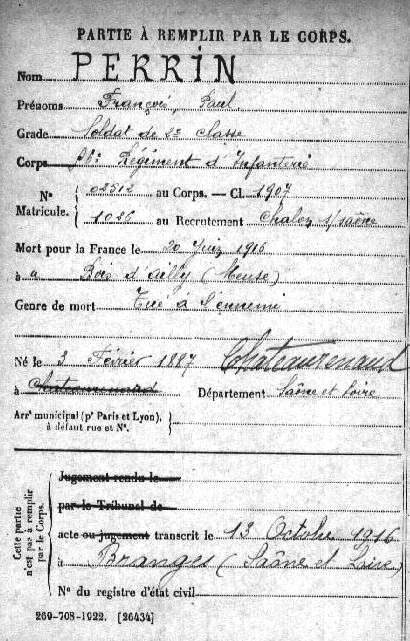 PARTIE À REMPLIR PAR LE CORPS.
Nom PERRIN
Prénoms François, Paul
Grade Soldat de 2e classe
Corps Régiment d'Infanterie
Nos Matricule. { 02512 au Corps. — Cl. 1907
1026 au Recrutement Chalon s/saône
Mort pour la France le 20 Juin 1915
à a Bois d'ailly (Meuse)
Genre de mort Tué à l'ennemi
Né le 3 Février 1887 Chateaurenaud
à Chateaurenard Département Saône et Loire
Arrt municipal (pr Paris et Lyon), à défaut rue et No.
Cette partie n'est pas à remplir par le Corps.
Jugement rendu le
par le Tribunal de
acte ou jugement transcrit le 13 Octobre 1916
à Branges (Saône et Loire)
No du registre d'état civil
269-708-1922. [26434]